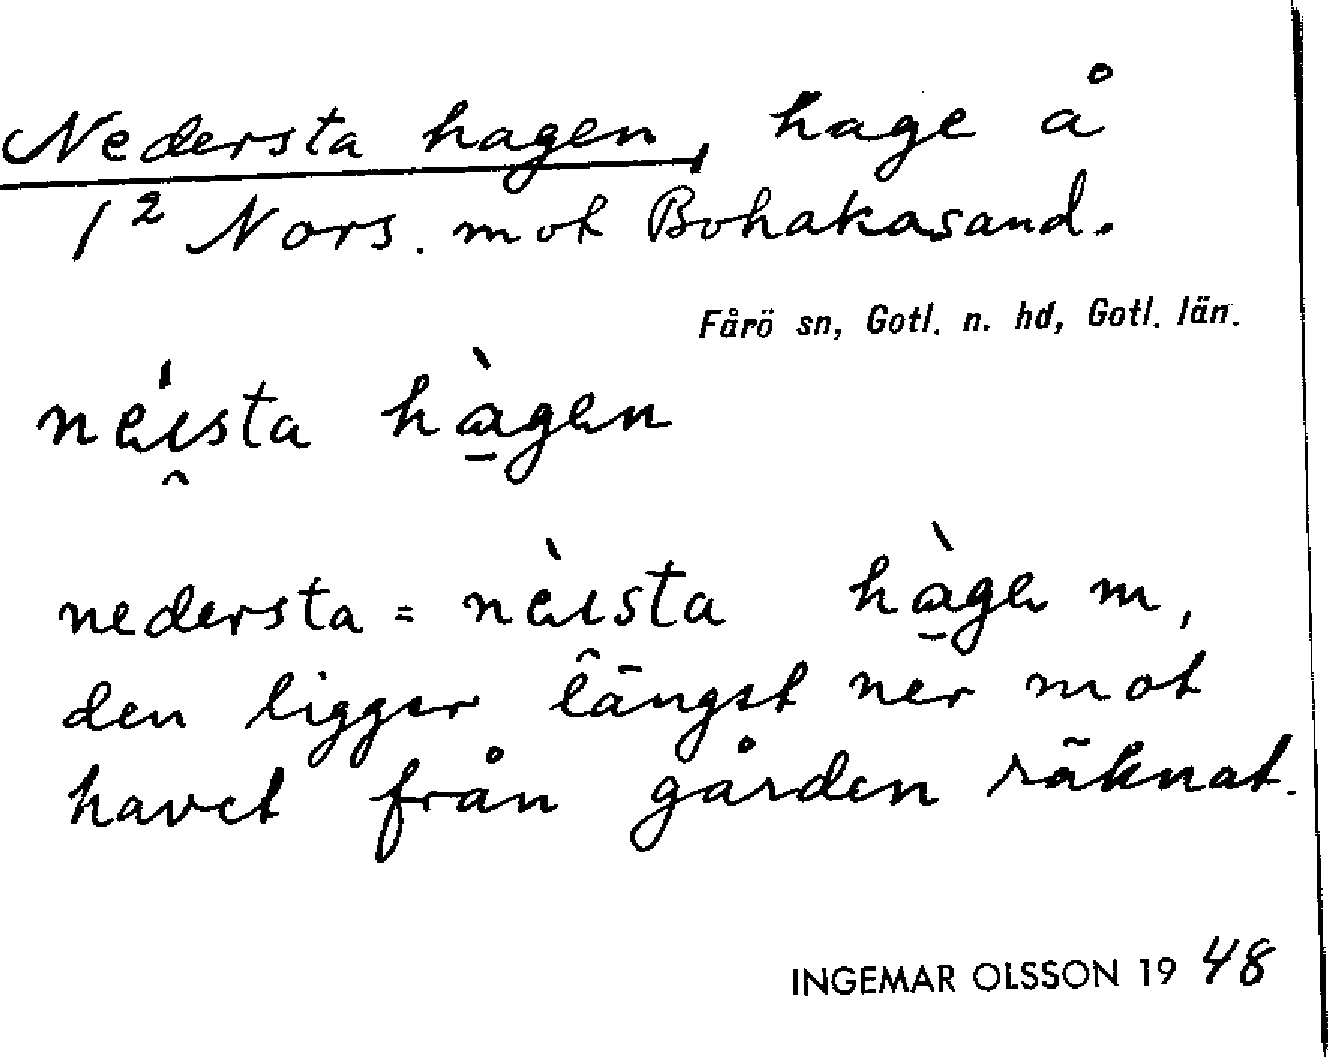 Nedersta hagen, hage å
1² Nors. mot Bohakasand.
Fårö sn, Gotl. n. hd, Gotl. län.
néi̯sta hà̱gen
nedersta = nèi̯sta hà̱ge m,
den ligger längst ner mot
havet från gården räknat.
INGEMAR OLSSON 19 48